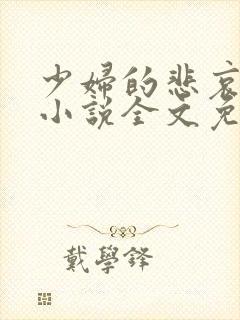 少婦的悲哀
小説全文免
戴學鋒